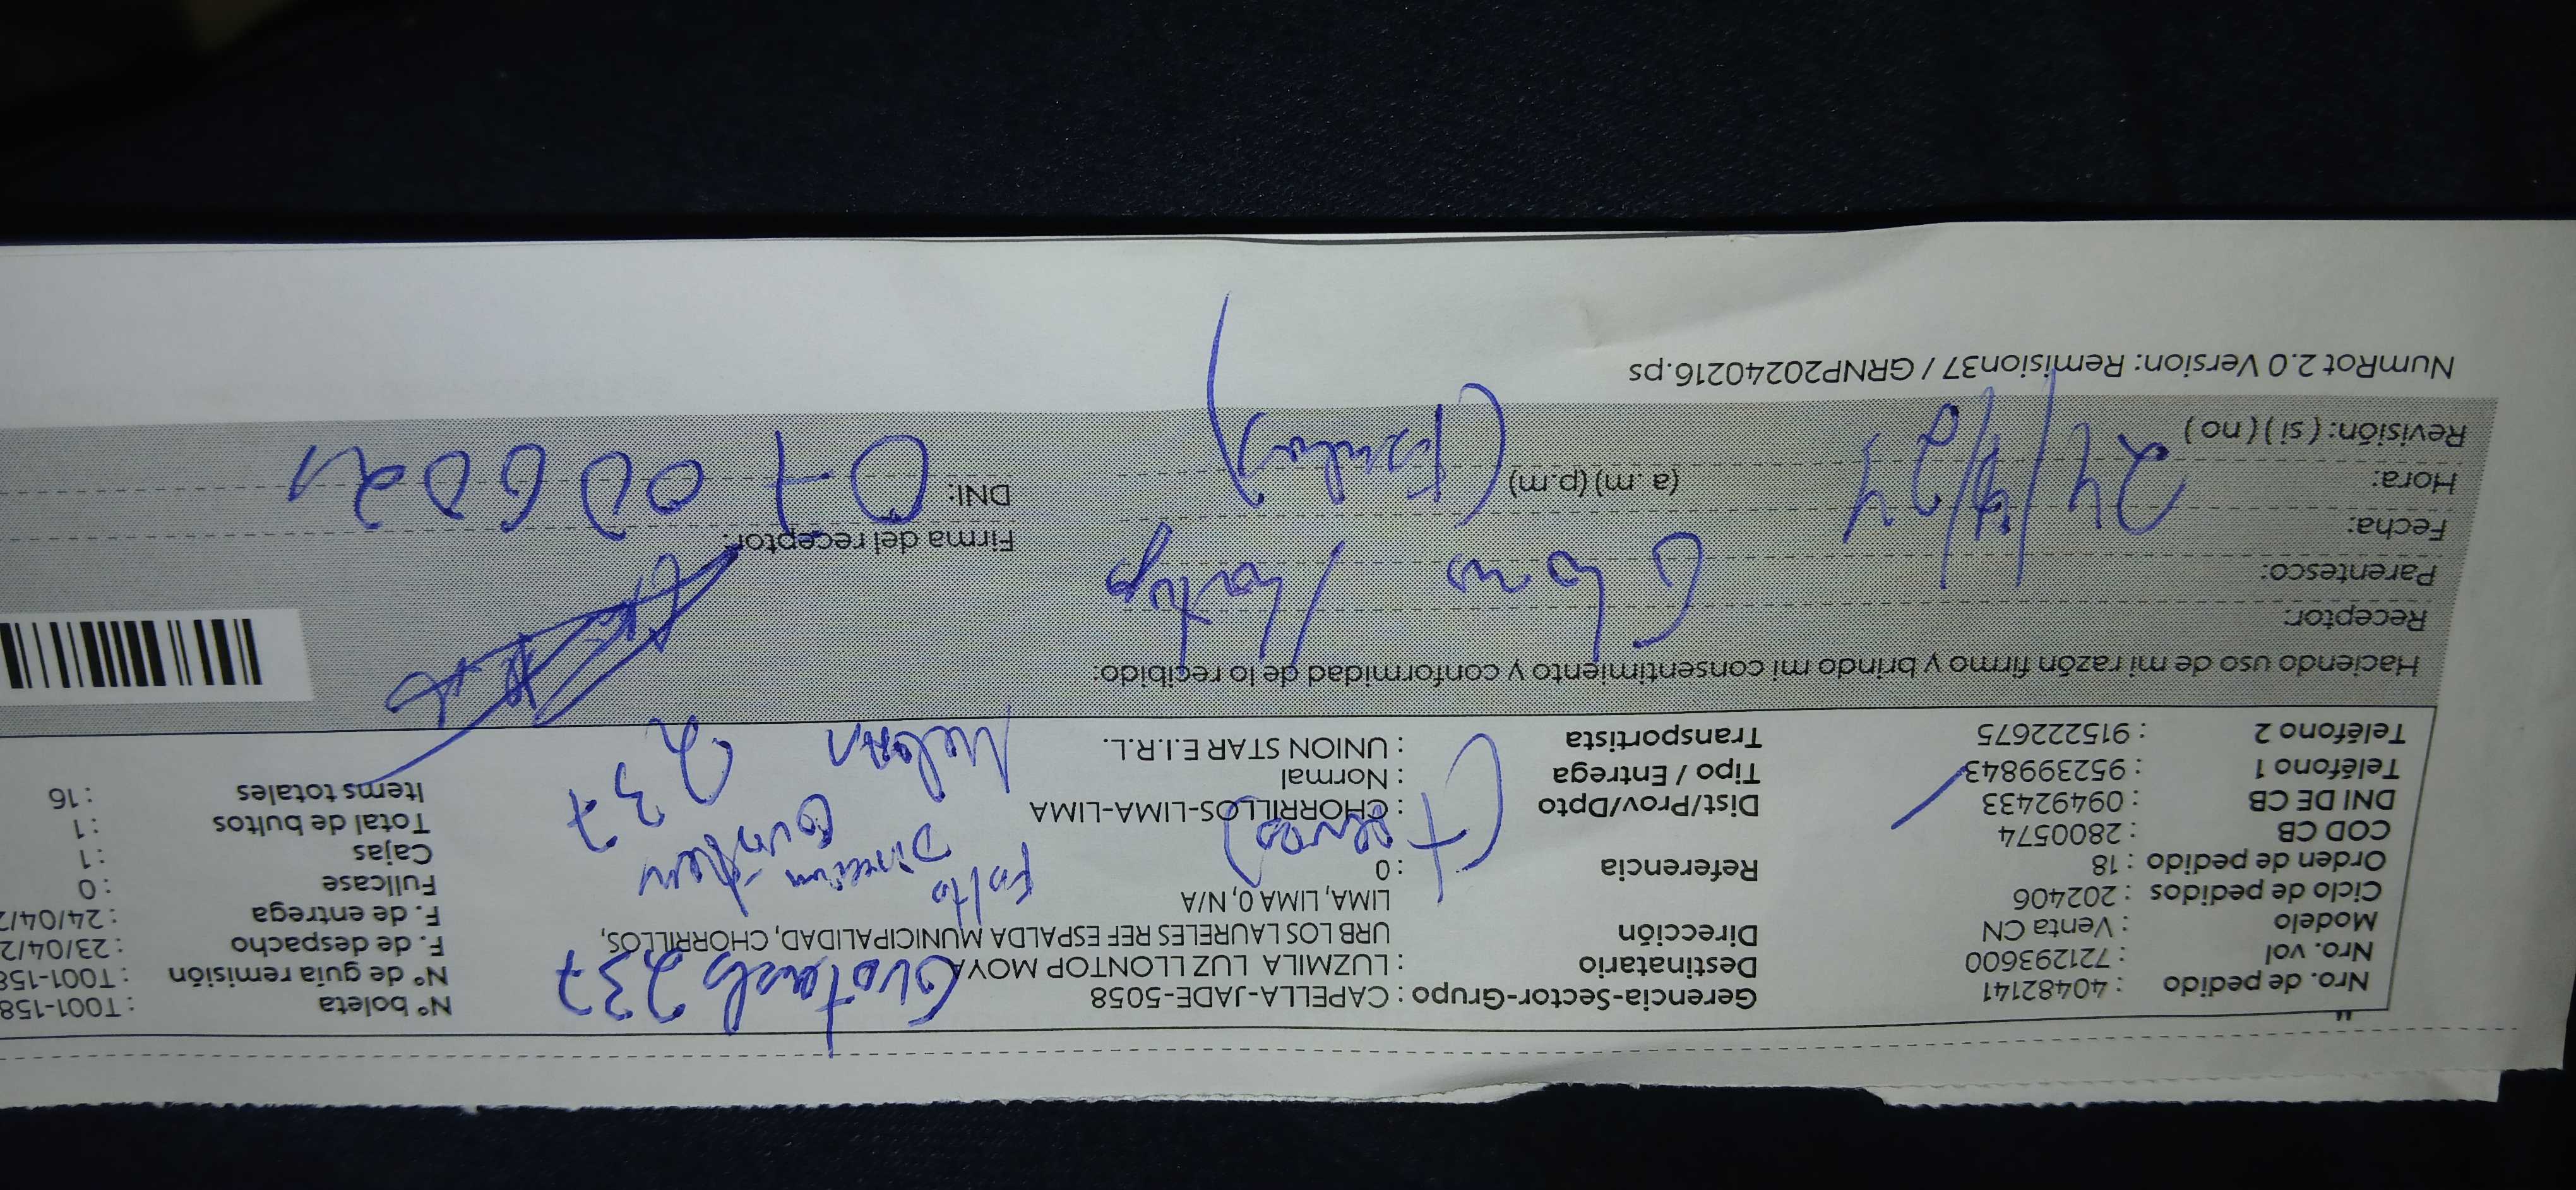 Nro. de pedido : 40482141
Nro. vol : 721293600
Modelo : Venta CN
Ciclo de pedidos : 202406
Orden de pedido : 18
COD CB : 2800574
DNI DE CB : 09492433
Teléfono 1 : 952399843
Teléfono 2 : 915222675
Gerencia-Sector-Grupo : CAPELLA-JADE-5058
Destinatario : LUZMILA LUZ LLONTOP MOYA
Dirección URB LOS LAURELES REF ESPALDA MUNICIPALIDAD, CHORRILLOS,
LIMA, LIMA 0, N/A
Referencia : 0
Dist/Prov/Dpto : CHORRILLOS-LIMA-LIMA
Tipo / Entrega : Normal
Transportista : UNION STAR E.I.R.L.
237
Falto
Dirección
237
N° boleta : T001-158
N° de guía remisión : T001-158
F. de despacho : 23/04/2
F. de entrega : 24/04/2
Fullcase : 0
Cajas : 1
Total de bultos : 1
Items totales : 16
Haciendo uso de mi razón firmo y brindo mi consentimiento y conformidad de lo recibido:
Receptor:
Parentesco:
Fecha: 24/4/24
Hora: (a. m) (p.m)
Revisión: ( si ) ( no )
Firma del receptor:
DNI:
NumRot 2.0 Version: Remision37 / GRNP20240216.ps